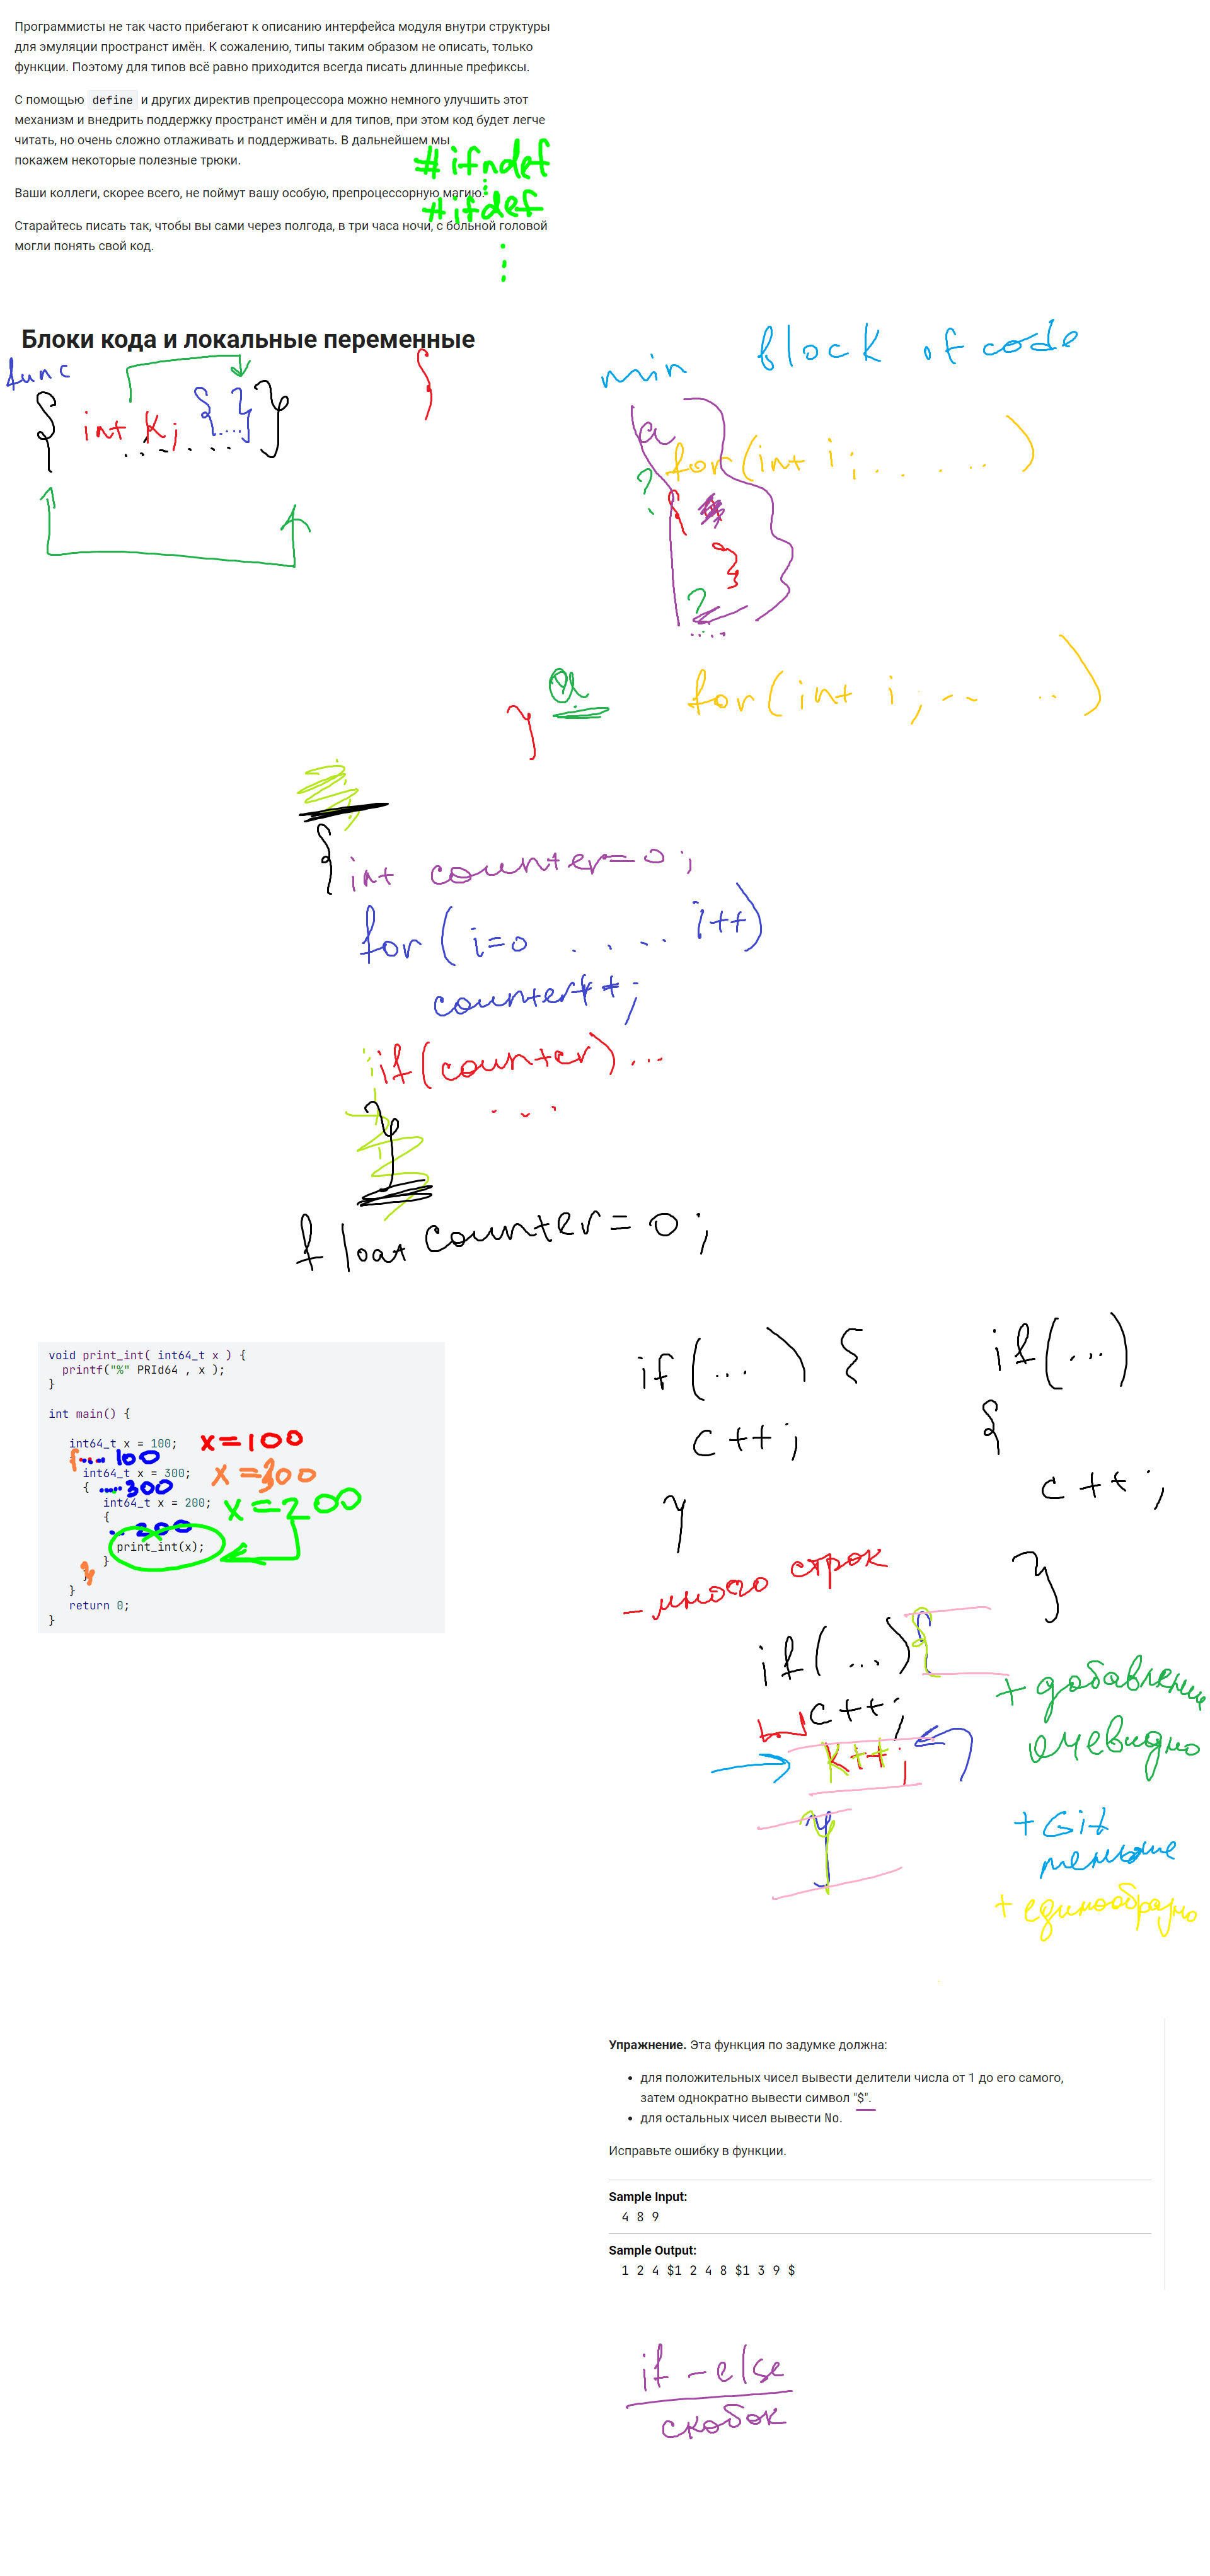 Программисты не так часто прибегают к описанию интерфейса модуля внутри структуры
для эмуляции пространст имён. К сожалению, типы таким образом не описать, только
функции. Поэтому для типов всё равно приходится всегда писать длинные префиксы.
С помощью define и других директив препроцессора можно немного улучшить этот
механизм и внедрить поддержку пространст имён и для типов, при этом код будет легче
читать, но очень сложно отлаживать и поддерживать. В дальнейшем мы
покажем некоторые полезные трюки.
#ifndef
Ваши коллеги, скорее всего, не поймут вашу особую, препроцессорную магию.
#ifdef
Старайтесь писать так, чтобы вы сами через полгода, в три часа ночи, с больной головой
могли понять свой код.
Блоки кода и локальные переменные
func
{ int k; {....}}
......
{
min block of code
a
for(int i; . . . . .)
?
{
}
?
....
}
for(int i; -- ..)
{ int counter=0;
for (i=0 . . . .. i++)
counter++;
if(counter)...
...
}
float counter=0;
void print_int( int64_t x ) {
printf("%" PRId64 , x );
}
int main() {
int64_t x = 100; x=100
{.... 100
int64_t x = 300; x=300
{ .... 300
int64_t x = 200; x=200
{
... 200
print_int(x);
}
}
}
return 0;
}
if(...) {
c++;
}
if(...)
{
c++;
}
- много строк
if(...){
c++;
k++;
}
+ добавление
очевидно
+ Git
меньше
+ единообразно
Упражнение. Эта функция по задумке должна:
• для положительных чисел вывести делители числа от 1 до его самого,
затем однократно вывести символ "$".
• для остальных чисел вывести No.
Исправьте ошибку в функции.
Sample Input:
4 8 9
Sample Output:
1 2 4 $1 2 4 8 $1 3 9 $
if -else
скобок